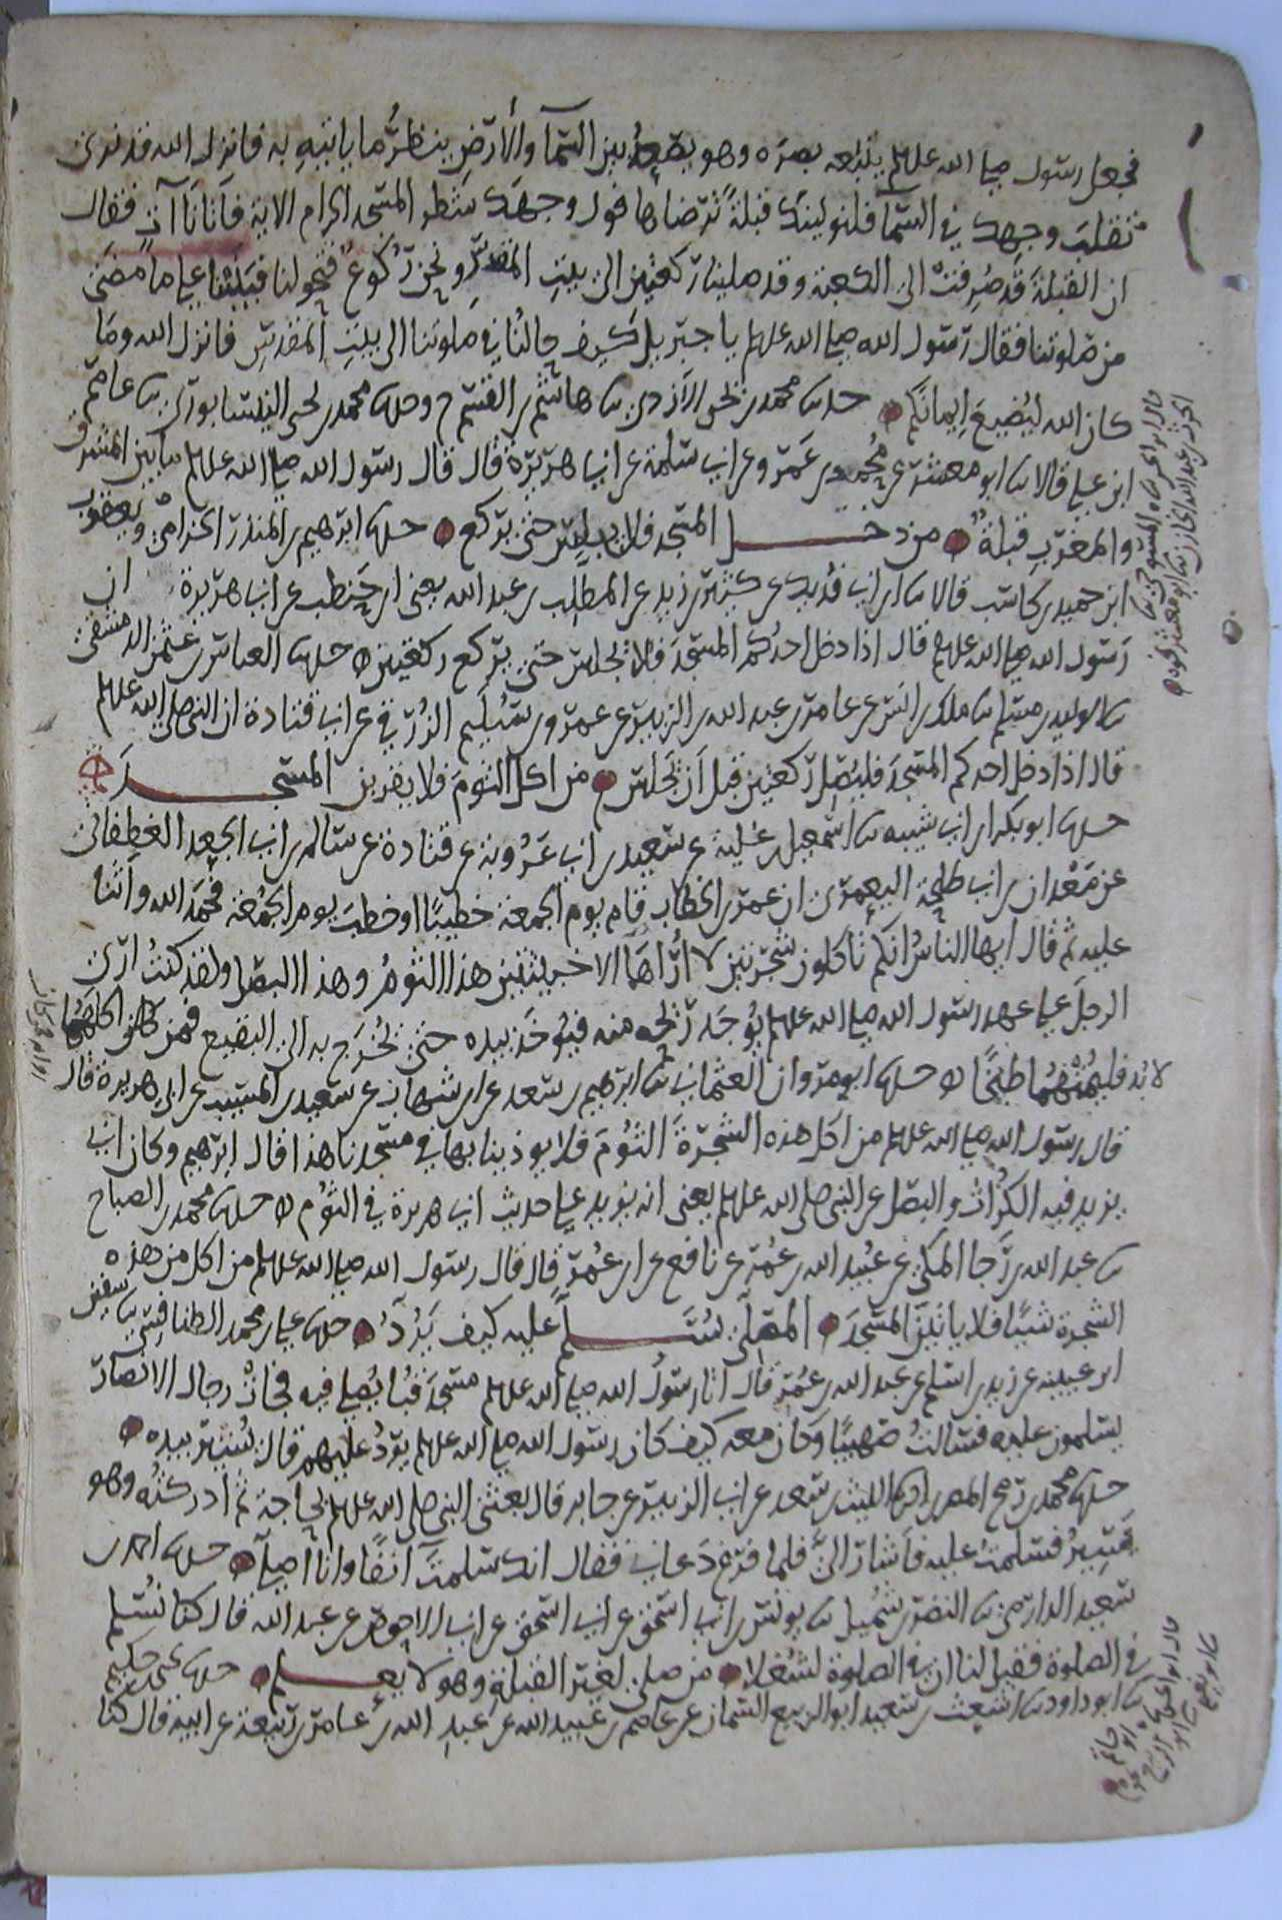 فجعل رسول صلى الله عليه وسلم يتبعه بصره وهو يصعد بين السما والأرض ينظر ما ياتيه به فانزل الله قد نرى
تقلب وجهك في السما فلنولينك قبلة ترضاها فول وجهك شطر المسجد الحرام الاية فاتانا آت فقال
ان القبلة قد صرفت الى الكعبة وقد صلينا ركعتين الى بيت المقدس ونحن ركوع فتحولنا فبنينا على ما مضى
من صلوتنا فقال رسول الله صلى الله عليه وسلم يا جبريل كيف حالنا في صلوتنا الى بيت المقدس فانزل الله وما
كان الله ليضيع ايمانكم حدثنا محمد بن يحيى الازدي ثنا هاشم بن القسم ح وحدثنا محمد بن يحيى النيسابوري ثنا عاصم
ابن علي قالا ثنا ابو معشر عن محمد بن عمرو عن ابي سلمة عن ابي هريرة قال قال رسول الله صلى الله عليه وسلم ما بين المشرق
والمغرب قبلة من دخل المسجد فلا يجلس حتى يركع حدثنا ابرهيم بن المنذر الحزامي ويعقوب
ابن حميد بن كاسب قالا ثنا ابن ابي فديك عن كثير بن زيد عن المطلب بن عبد الله يعني ابن حنطب عن ابي هريرة ان
رسول الله صلى الله عليه وسلم قال اذا دخل احدكم المسجد فلا يجلس حتى يركع ركعتين حدثنا العباس بن عثمن الدمشقي
ثنا الوليد بن مسلم ثنا ملك بن انس عن عامر بن عبد الله بن الزبير عن عمرو بن سليم الزرقي عن ابي قتادة ان النبي صلى الله عليه وسلم
قال اذا دخل احدكم المسجد فليصل ركعتين قبل ان يجلس من اكل الثوم فلا يقربن المسجد
حدثنا ابو بكر ابن ابي شيبه ثنا اسمعيل بن علية عن سعيد بن ابي عروبة عن قتادة عن سالم بن ابي الجعد الغطفاني
عن معدان بن ابي طلحة اليعمري ان عمر بن الخطاب قام يوم الجمعة خطيبا او خطب يوم الجمعة فحمد الله واثنا
عليه ثم قال ايها الناس انكم تاكلون شجرتين لا اراهما الا خبيثتين هذا الثوم وهذا البصل ولقد كنت ارى
الرجل على عهد رسول الله صلى الله عليه وسلم يوجد ريحه منه فيؤخذ بيده حتى يخرج به الى البقيع فمن كان اكلهما
لابد فليمتهما طبخا حدثنا ابو مروان العثماني ثنا ابرهيم بن سعد عن ابن شهاب عن سعيد بن المسيب عن ابي هريرة قال
قال رسول الله صلى الله عليه وسلم من اكل هذه الشجرة الثوم فلا يوذينا بها في مسجدنا هذا قال ابرهيم وكان ابي
يزيد فيه الكراث والبصل عن النبي صلى الله عليه وسلم يعني انه يزيد على حديث ابي هريرة في الثوم حدثنا محمد بن الصباح
ثنا عبد الله بن رجا المكي عن عبيد الله بن عمر عن نافع عن ابن عمر قال قال رسول الله صلى الله عليه وسلم من اكل من هذه
الشجرة شيئا فلا ياتين المسجد المصلي يسلم عليه كيف يرد حدثنا علي بن محمد الطنافسي ثنا سفين
ابن عيينه عن زيد بن اسلم عن عبد الله بن عمر قال اتا رسول الله صلى الله عليه وسلم مسجد قبا يصلي فيه فجات رجال الانصار
يسلمون عليه فسالت صهيبا وكان معه كيف كان رسول الله صلى الله عليه وسلم يرد عليهم قال يشير بيده
حدثنا محمد بن رمح المصري انا الليث بن سعد عن ابي الزبير عن جابر قال بعثني النبي صلى الله عليه وسلم لحاجة ثم ادركته وهو
يسير فسلمت عليه فاشار الي فلما فرغ دعاني فقال انك سلمت آنفا وانا اصلي حدثنا احمد بن
سعيد الدارمي ثنا النضر بن شميل ثنا يونس بن ابي اسحق عن ابي اسحق عن ابي الاحوص عن عبد الله قال كنا نسلم
في الصلوة فقيل لنا ان في الصلوة لشغلا من صلى لغير القبلة وهو لا يعلم حدثنا يحيى بن حكيم
ثنا ابو داود ثنا اشعث بن سعيد ابو الربيع السمان عن عاصم بن عبيد الله عن عبد الله بن عامر بن ربيعة عن ابيه قال كنا